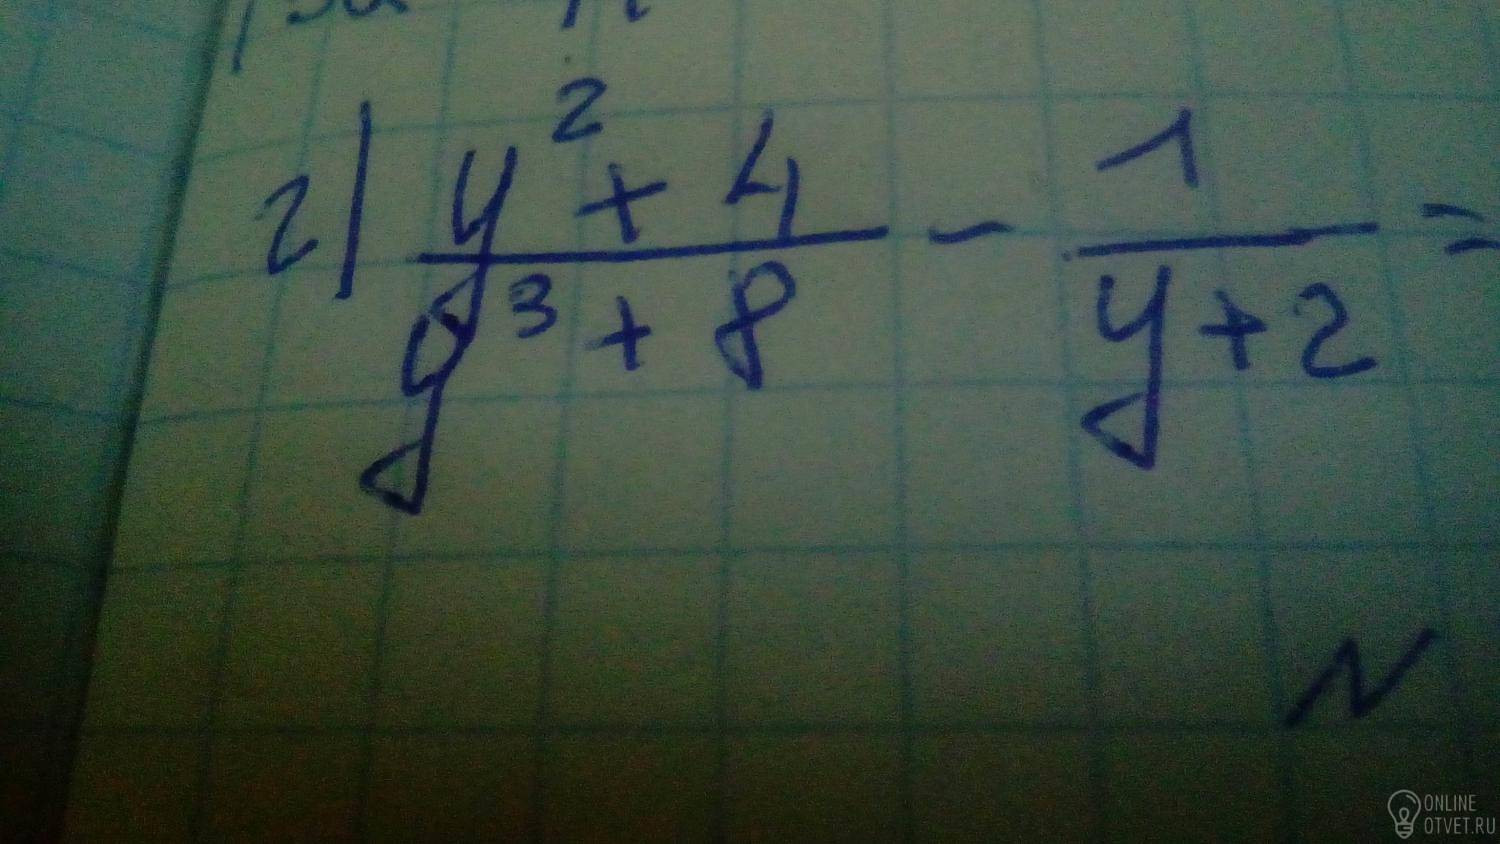 2) \frac{y^2 + 4}{y^3 + 8} - \frac{1}{y + 2} =
N
ONLINE
OTVET.RU